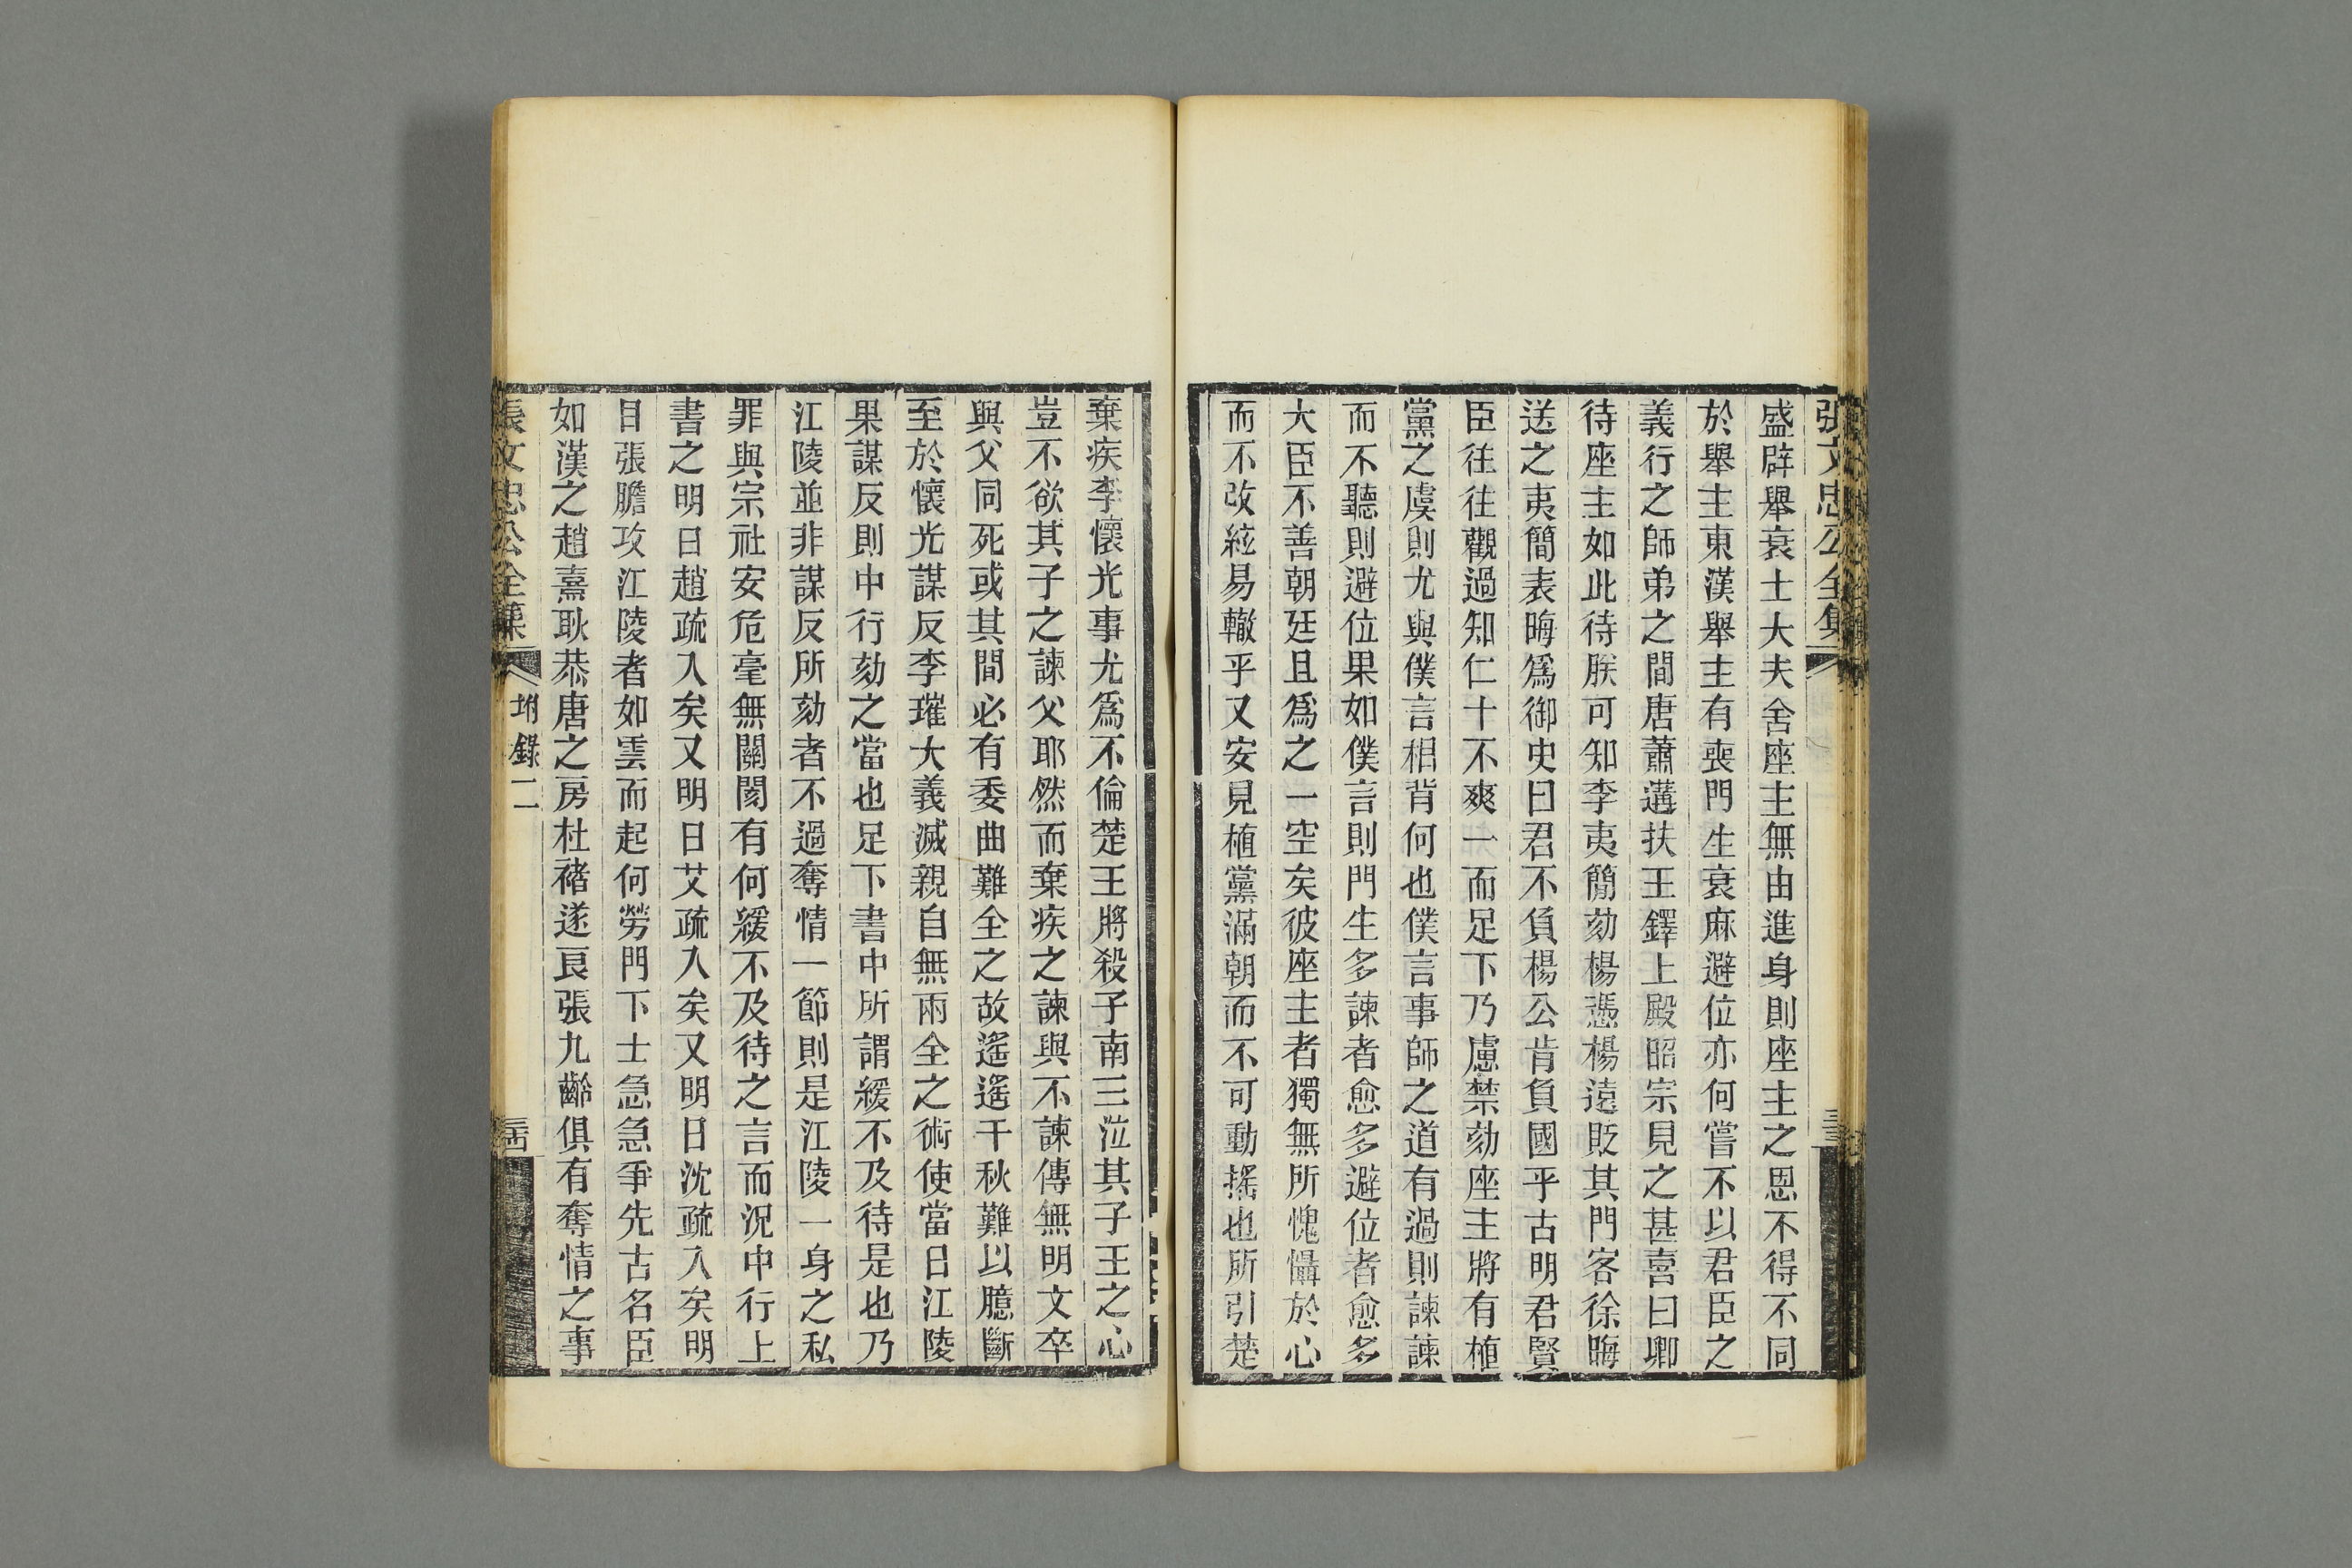 張文忠公全集
盛辟舉衰士大夫舍座主無由進身則座主之恩不得不同
於舉主東漢舉主有喪門生衰麻避位亦何嘗不以君臣之
義行之師弟之間唐蕭遘扶王鐸上殿昭宗見之甚喜曰卿
待座主如此待朕可知李夷簡劾楊憑楊遠貶其門客徐晦
送之夷簡表晦爲御史曰君不負楊公肯負國乎古明君賢
臣往往觀過知仁十不爽一而足下乃慮禁劾座主將有植
黨之虞則尤與僕言相背何也僕言事師之道有過則諫諫
而不聽則避位果如僕言則門生多諫者愈多避位者愈多
大臣不善朝廷且爲之一空矣彼座主者獨無所愧懾於心
而不改絃易轍乎又安見植黨滿朝而不可動搖也所引楚
棄疾李懷光事尤爲不倫楚王將殺子南三泣其子王之心
豈不欲其子之諫父耶然而棄疾之諫與不諫傳無明文卒
與父同死或其間必有委曲難全之故遙遙千秋難以臆斷
至於懷光謀反李璀大義滅親自無兩全之術使當日江陵
果謀反則中行劾之當也足下書中所謂緩不及待是也乃
江陵並非謀反所劾者不過奪情一節則是江陵一身之私
罪與宗社安危毫無關閡有何緩不及待之言而況中行上
書之明日趙疏入矣又明日艾疏入矣又明日沈疏入矣明
目張膽攻江陵者如雲而起何勞門下士急急爭先古名臣
如漢之趙憙耿恭唐之房杜褚遂良張九齡俱有奪情之事
張文忠公全集
坿錄二